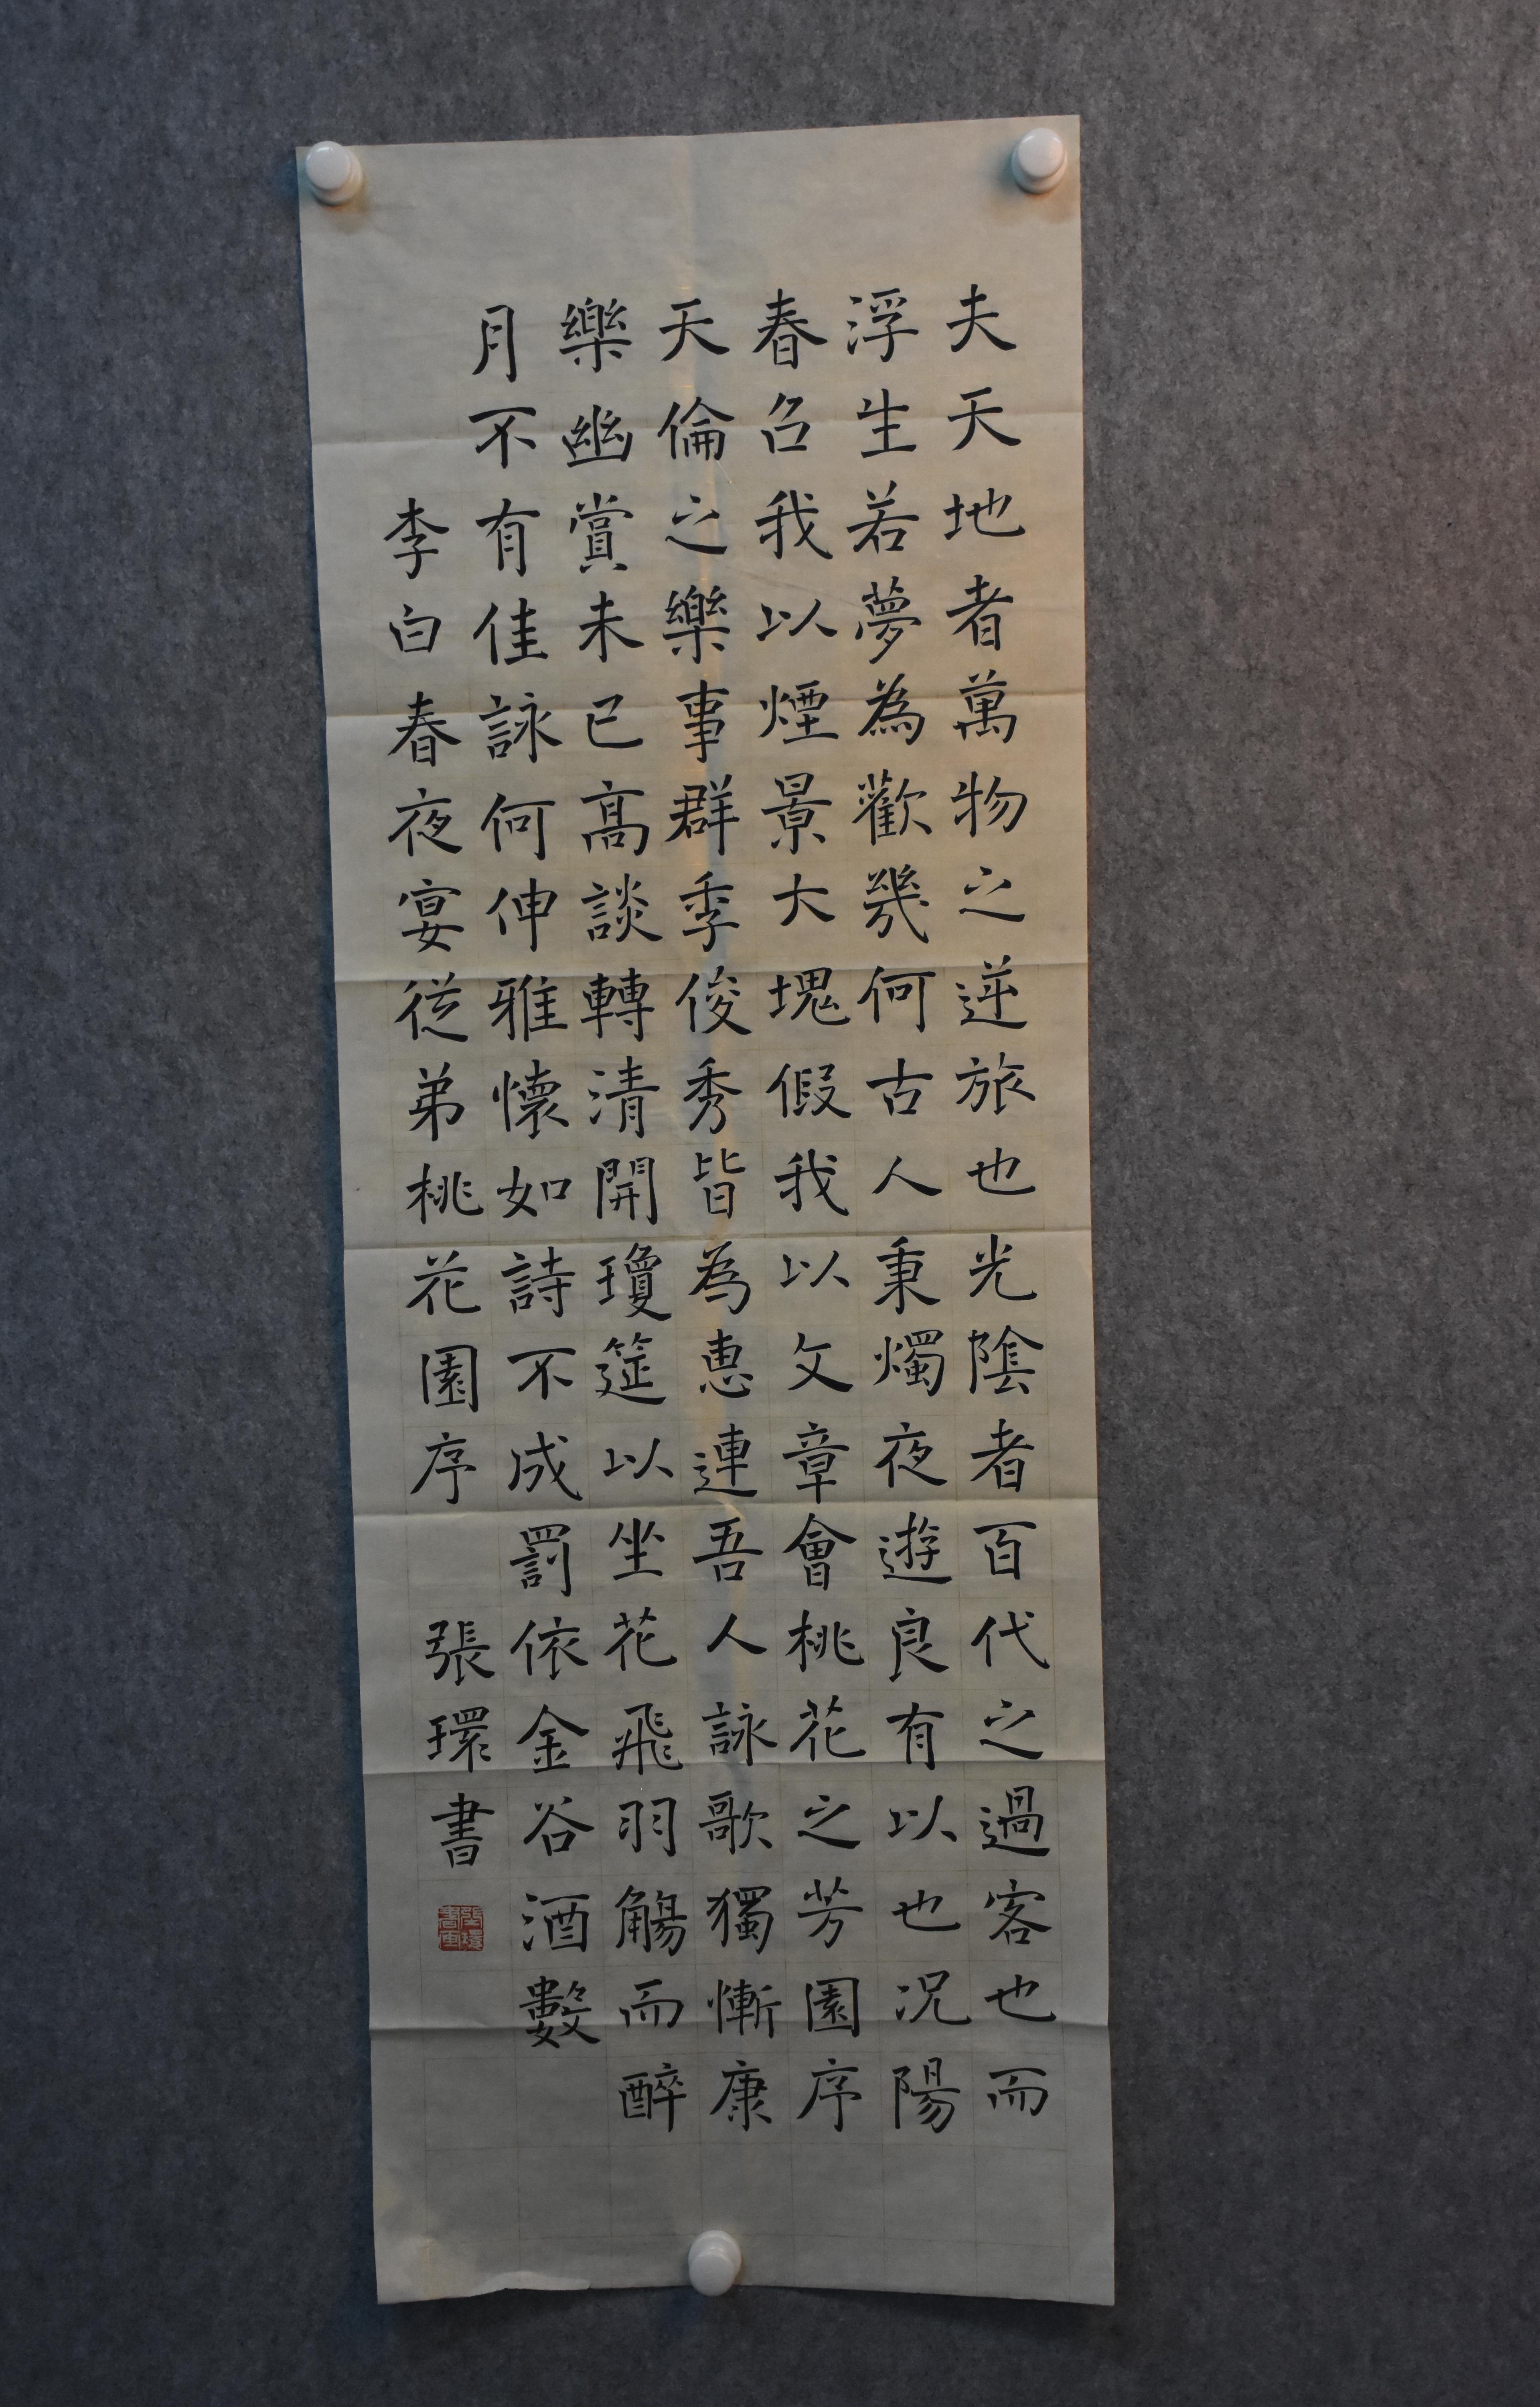 夫天地者萬物之逆旅也光陰者百代之過客也而
浮生若夢為歡幾何古人秉燭夜遊良有以也况陽
春召我以煙景大塊假我以文章會桃花之芳園序
天倫之樂事群季俊秀皆為惠連吾人詠歌獨慚康
樂幽賞未已高談轉清開瓊筵以坐花飛羽觴而醉
月不有佳詠何伸雅懷如詩不成罰依金谷酒數
李白春夜宴從弟桃花園序
張環書